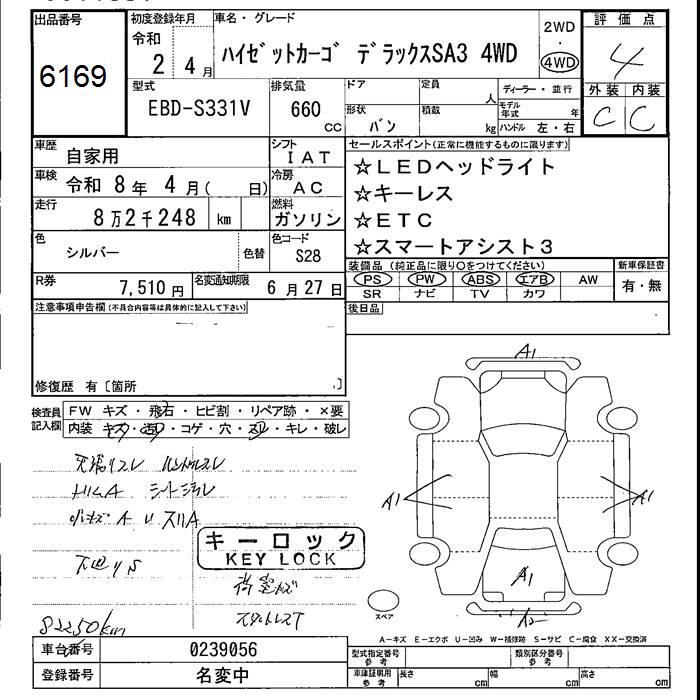 出品番号
6169
初度登録年月
令和
2 4月
車名・グレード
ハイゼットカーゴ デラックスSA3 4WD
2WD
・
4WD
評価点
4
外装 内装
C C
型式
EBD-S331V
排気量
660
CC
ドア
定員
人
形状
バン
積載
kg
ディーラー・並行
モデル年式
年
ハンドル 左・右
車歴
自家用
シフト
IAT
車検
令和 8年 4月( 日)
冷房
AC
走行
8万2千248 km
燃料
ガソリン
色
シルバー
色替
色コード
S28
R券
7,510円
名変通知期限
6月27日
セールスポイント(正常に機能するものに限ります)
☆LEDヘッドライト
☆キーレス
☆ETC
☆スマートアシスト3
装備品(純正品に限り○をつけてください)
PS PW ABS エアB AW
SR ナビ TV カワ
新車保証書
有・無
後日品
注意事項申告欄(不具合内容等は具体的に記入して下さい)
修復歴 有〔箇所 〕
検査員
記入欄
FW キズ・飛石・ヒビ割・リペア跡・×要
内装 キズ・汚れ・コゲ・穴・スレ・キレ・破レ
天張リスレ ハンドルスレ
キーロック
KEY LOCK
下廻リS
荷室キズ
スタットレスT
82250km
A1
A1
A1
A1
スペア
A-キズ E-エクボ U-凹み W-補修跡 S-サビ C-腐食 XX-交換済
車台番号
0239056
登録番号
名変中
型式指定番号
参考
類別区分番号
参考
車庫証明用
参考
長さ cm
幅 cm
高さ cm